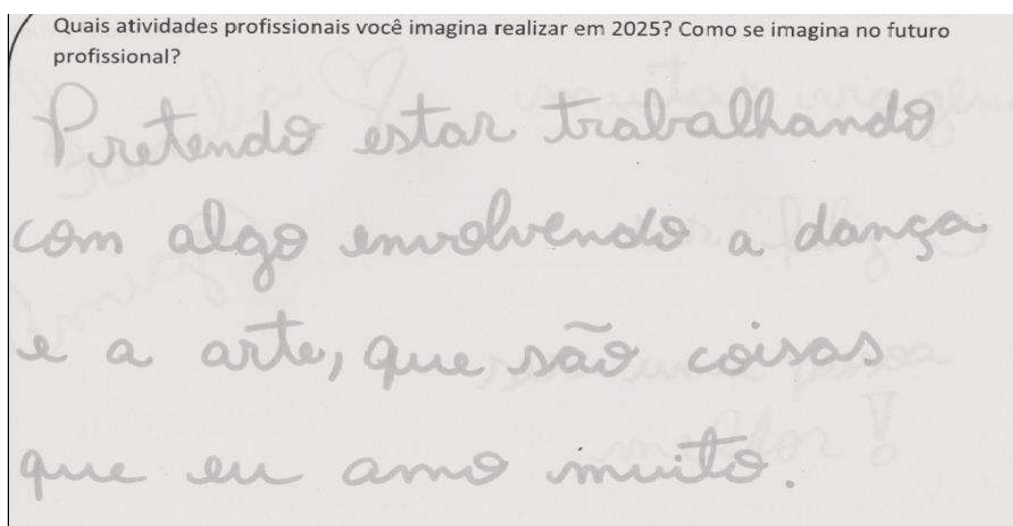 Quais atividades profissionais você imagina realizar em 2025? Como se imagina no futuro
profissional?
Pretendo estar trabalhando
com algo envolvendo a dança
e a arte, que são coisas
que eu amo muito.